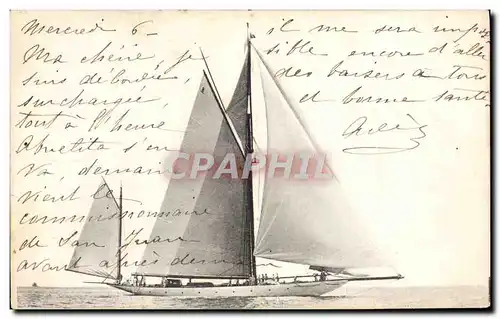 Mercredi 6 -
Ma chérie, je
suis débordée,
surchargée,
tout à l'heure
Abuelita s'en
va, demain
vient le
commissionnaire
de San Juan
avant après demain
il me sera impos
sible encore d'aller
des baisers à tous
et bonne santé
Adèle
CPARAMA